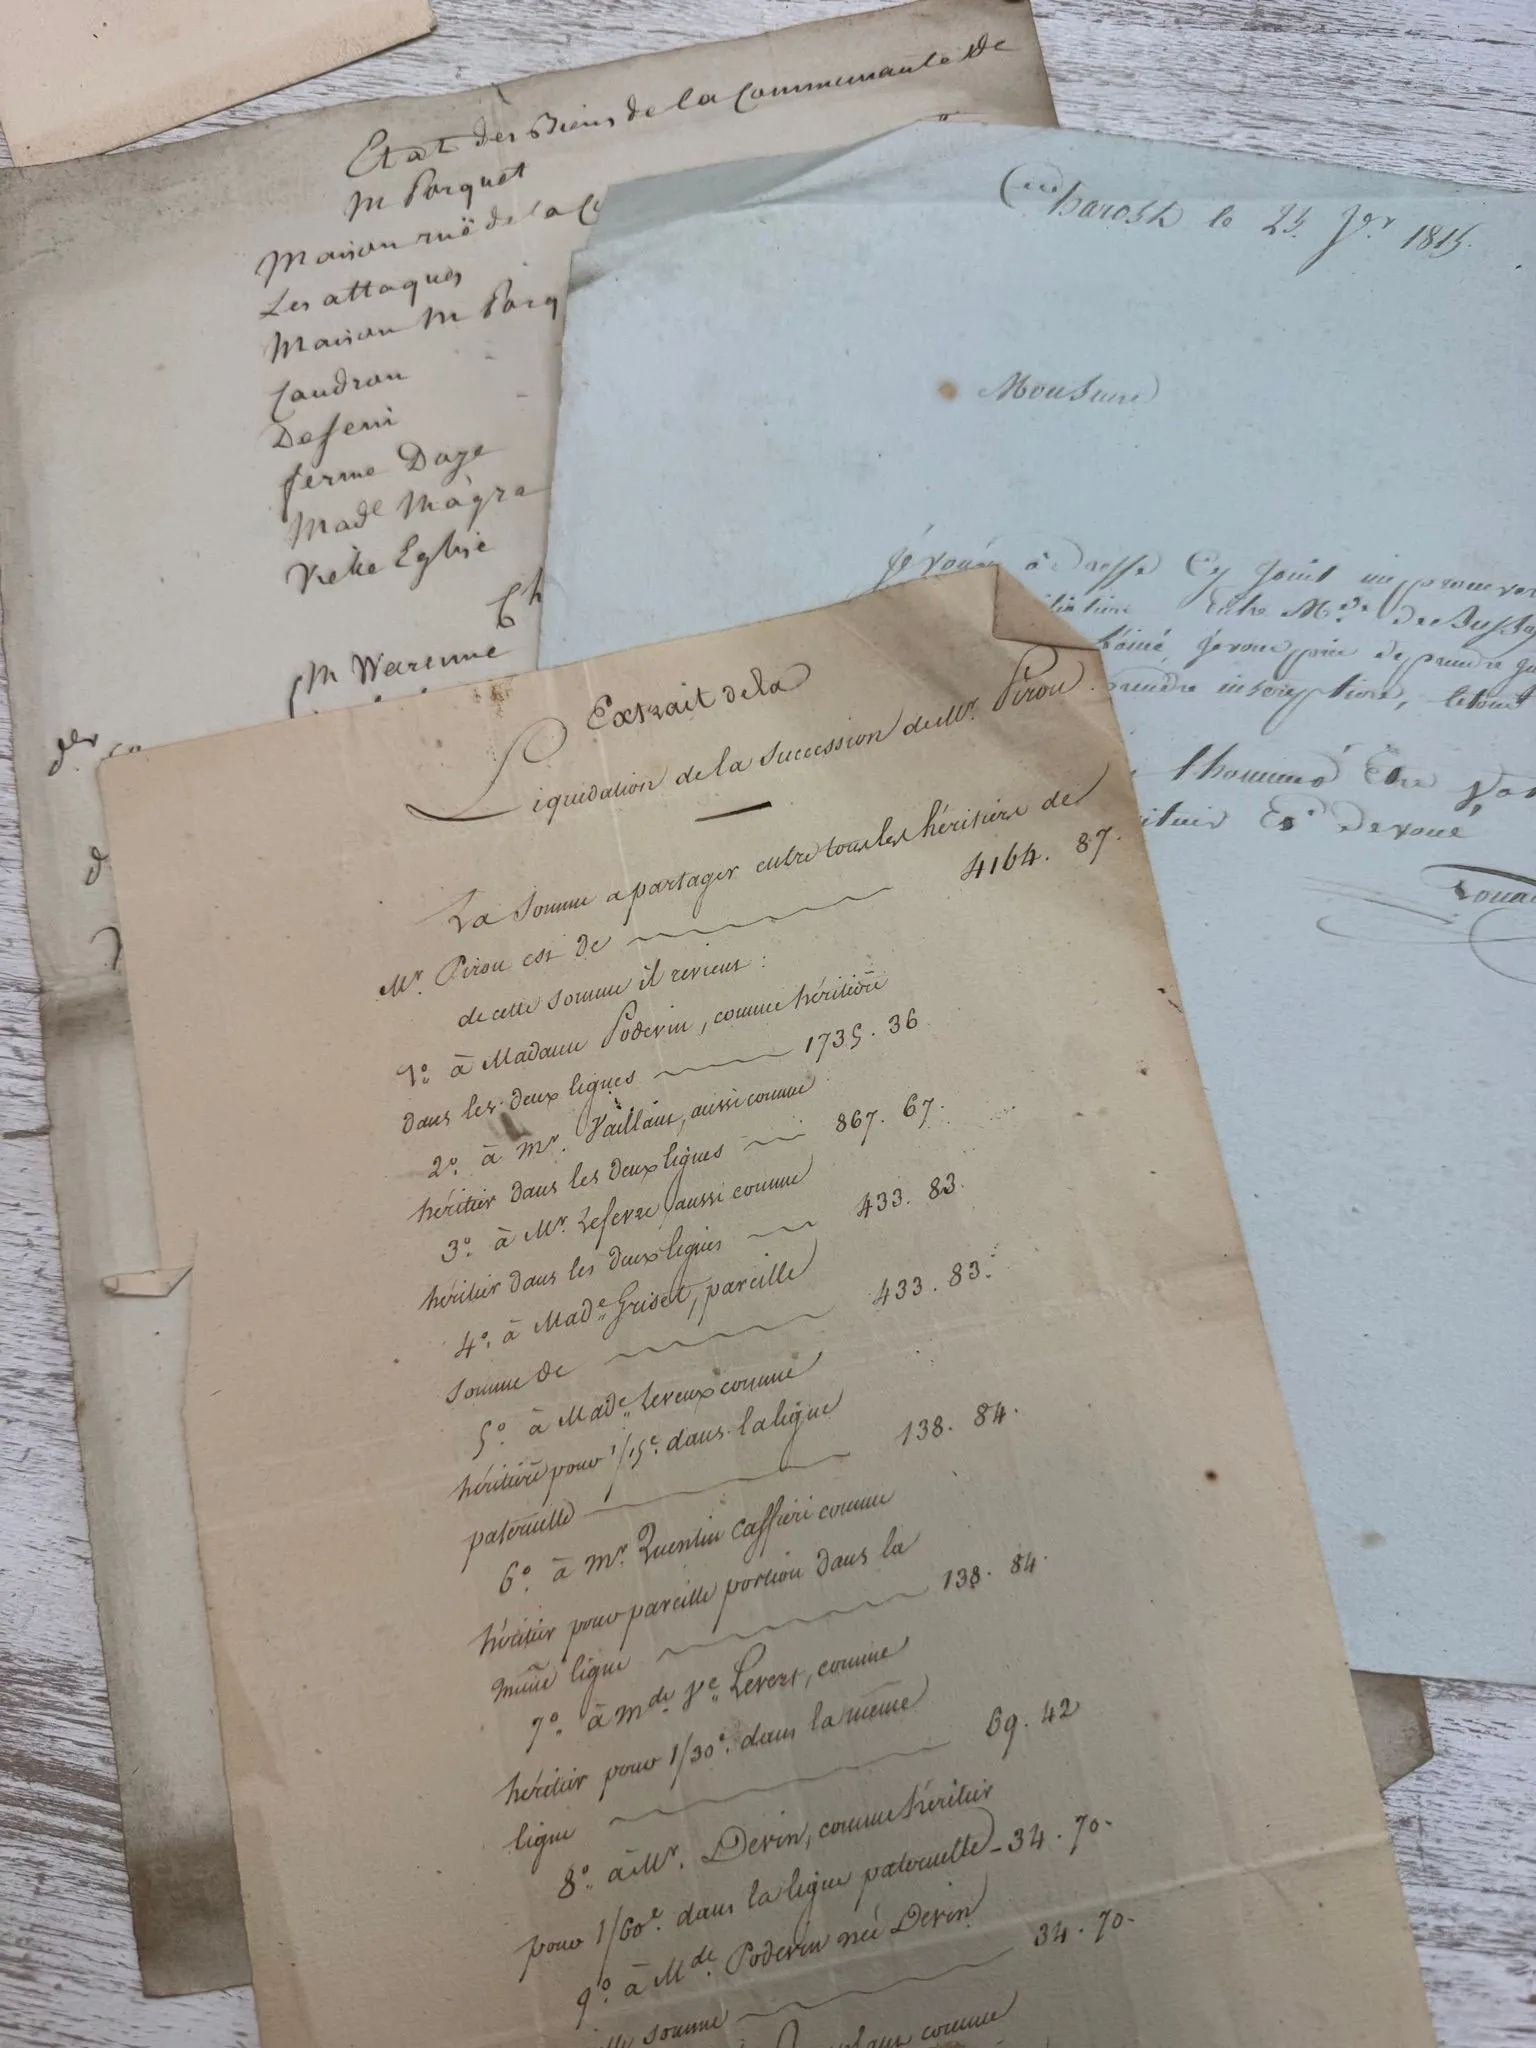 Etat des Biens de la Communauté de
M Parquet
Maison rue de la
Les attaques
Maison M Parq
Caudron
ferme Daze
Made Magra
Vieille Eglise
Ch
M Warenne
le 25 Jer 1815.
Monsieur
Je vous adresse Cy Joint un
entre Mde
Je vous prie de prendre
prendre inscription,
l'honneur d'Etre
Devoué
Extrait de la
Liquidation de la Succession de Mr. Pirou.
La Somme a partager entre tous les héritiers de
Mr. Pirou est de 4164. 87.
de cette somme il revient :
1o. à Madame Poderin, comme héritière
dans les deux lignes 1735. 36
2o. à Mr. Vaillant, aussi comme
héritier dans les deux lignes 867. 67.
3o. à Mr. Lefevre aussi comme
héritier dans les deux lignes 433. 83.
4o. à Made. Griset, pareille
somme de 433. 83.
5o. à Made. Leveux comme
héritière pour 1/15e. dans la ligne
paternelle 138. 84.
6o. à Mr. Quentin Caffieri comme
héritier pour pareille portion dans la
même ligne 138. 84.
7o. à Mde. Ve. Levert, comme
héritier pour 1/30e. dans la même
ligne 69. 42
8o. à Mr. Devin, comme héritier
pour 1/60e. dans la ligne paternelle 34. 70.
9o. à Mde. Poderin née Devin
somme 34. 70.
comme